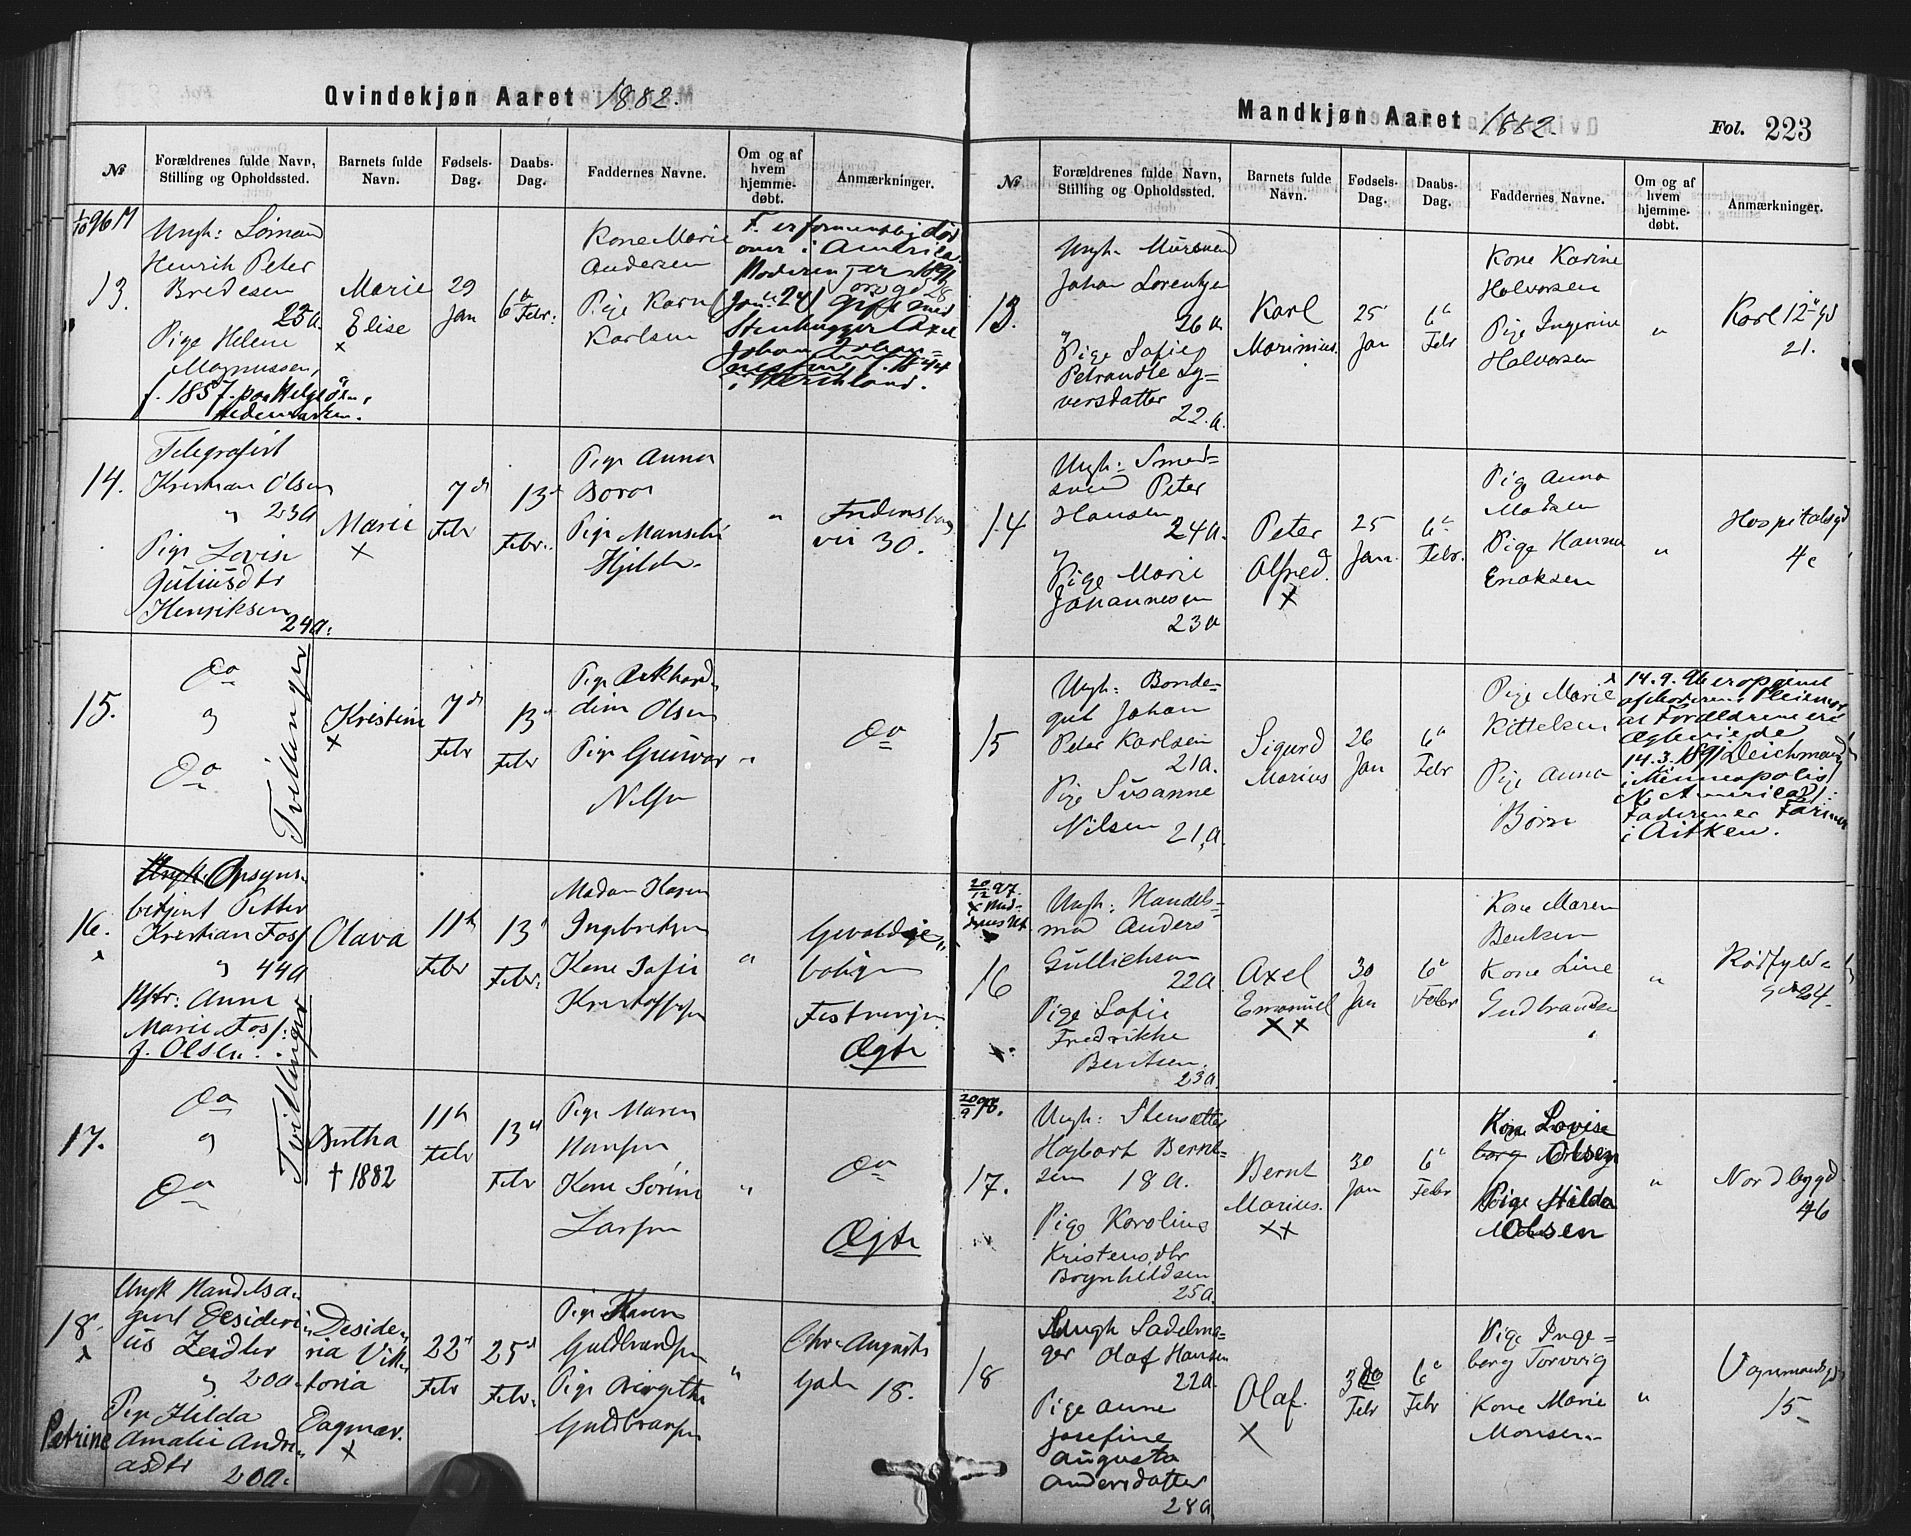 Qvindekjøn Aaret 1882.
№
Forældrenes fulde Navn,
Stilling og Opholdssted.
Barnets fulde
Navn.
Fødsels-
Dag.
Daabs-
Dag.
Faddernes Navne.
Om og af
hvem
hjemme-
døbt.
Anmærkninger.
13.
Ungk:
Henrik Peter
Bredesen
25a.
Pige Helene
Magnussen,
f. 1857. paa Helgøen,
Hedemarken.
Marie
Elise
×
29
Jan
6te Febr:
Kone Marie
Andersen
Pige Karn
Karlsen
F. er formentlig død
over i Amerika.
Moderen er 1891
gift med
Stenhugger Axel
Johan Johan=
nesen, f. 1844
14.
Telegrafist
Kristian Olsen
„ 23a
Pige Lovise
Juliusdtr
Henriksen
24a.
Marie
×
7d
Febr
13d
Febr.
Pige Anna
Boron
Pige
Hjelde.
„
Fredensborg
vei 30.
15.
Do
„
Do
Tvillinger
Kristine
×
7d
Febr
13d
Febr
Pige
Olsen
Pige Gunvor
Nilsen
„
Do
16.
×
Opsyns-
betjent Petter
Kristian Foss
„ 44a
Hstr: Anne
Marie Foss
f. Olsen.
Olava
11te
Febr
13d
Febr.
Madam Karen
Ingebretsen
Kone Sofie
Kristoffersen
„
boligen
Fæstningen
Ægte
17.
Do
„
Do
Tvillinger
Bertha
† 1882
11te
Febr
13d
Febr
Pige Maren
Hansen
Kone Sørine
Larsen
„
Do
Ægte
18.
×
Petrine
Ungk Handelsa-
gent Desideri-
us Zeidler
„ 20a
Pige Hilda
Amalie Andre-
asdtr
20a.
Deside-
ria Vik-
toria
Dagmar.
×
22d
Febr
25d
Febr.
Pige Karen
Guldbrandsen
Pige Birgitha
Guldbransen
„
Chr. Augusts
Gade 18.
Mandkjøn Aaret 1882.
Fol. 223
№
Forældrenes fulde Navn,
Stilling og Opholdssted.
Barnets fulde
Navn.
Fødsels-
Dag.
Daabs-
Dag.
Faddernes Navne.
Om og af
hvem
hjemme-
døbt.
Anmærkninger.
13.
Ungk. Mursvend
Johan Lorentzen
26a
„
Pige Sofie
Petrandte Sy-
versdatter
22.a.
Karl
Marinius.
25
Jan
6te
Febr
Kone Karine
Halvorsen
Pige Ingerine
Halvorsen
„
Karl 12te gd
21.
14
Ungk: Smed-
svend Peter
Hansen
24a.
„
Pige Marie
Johannesen
23a
Peter
Alfred.
×
25
Jan.
6te
Febr.
Pige Anna
Madsen
Pige Hanna
Enoksen
„
Hospitalsgd
4c
15
Ungk: Bonde-
gut Johan
Peter Karlsen
21a.
Pige Susanne
Nilsen 21,a.
Sigurd
Marius
26
Jan
6te
Febr
Pige Marie
Kittelsen
Pige Anna
Børse
14.9.96 er opgivet
af
at Forældrene ere
Ægteviede
14.3.1891
i Minneapolis
N. Amerika:
Faderen er Farmer
i Aitken.
20/12 97.
16
Ungk: Handels=
md Anders
Gullichsen
22a.
Pige Sofie
Fredrikke
Bentsen.
23a.
Axel
Emanuel
××
30
Jan
6te
Febr
Kone Maren
Bentsen
Kone Line
Gudbrandsen
„
Rødfyld=
gd 24.
20/9 98.
17.
Ungk: Stensætter
Hagbart Bernt-
sen 18a.
Pige Karoline
Kristensdtr
Brynhildsen
25a.
Bernt
Marius.
××
30
Jan
6te
Febr
Kone Lovise
Olsen
Pige Hilda
Olsen
„
Nordbygd
46
18
Ungk Sadelma-
ger Olaf Hansen
22a.
Pige Anne
Josefine
Augusta
Andersdatter
28a.
Olaf.
×
Febr
6te
Febr
Pige Inge=
borg Torvvig
Kone Marie
Monsen
„
Vognmandsgd
15